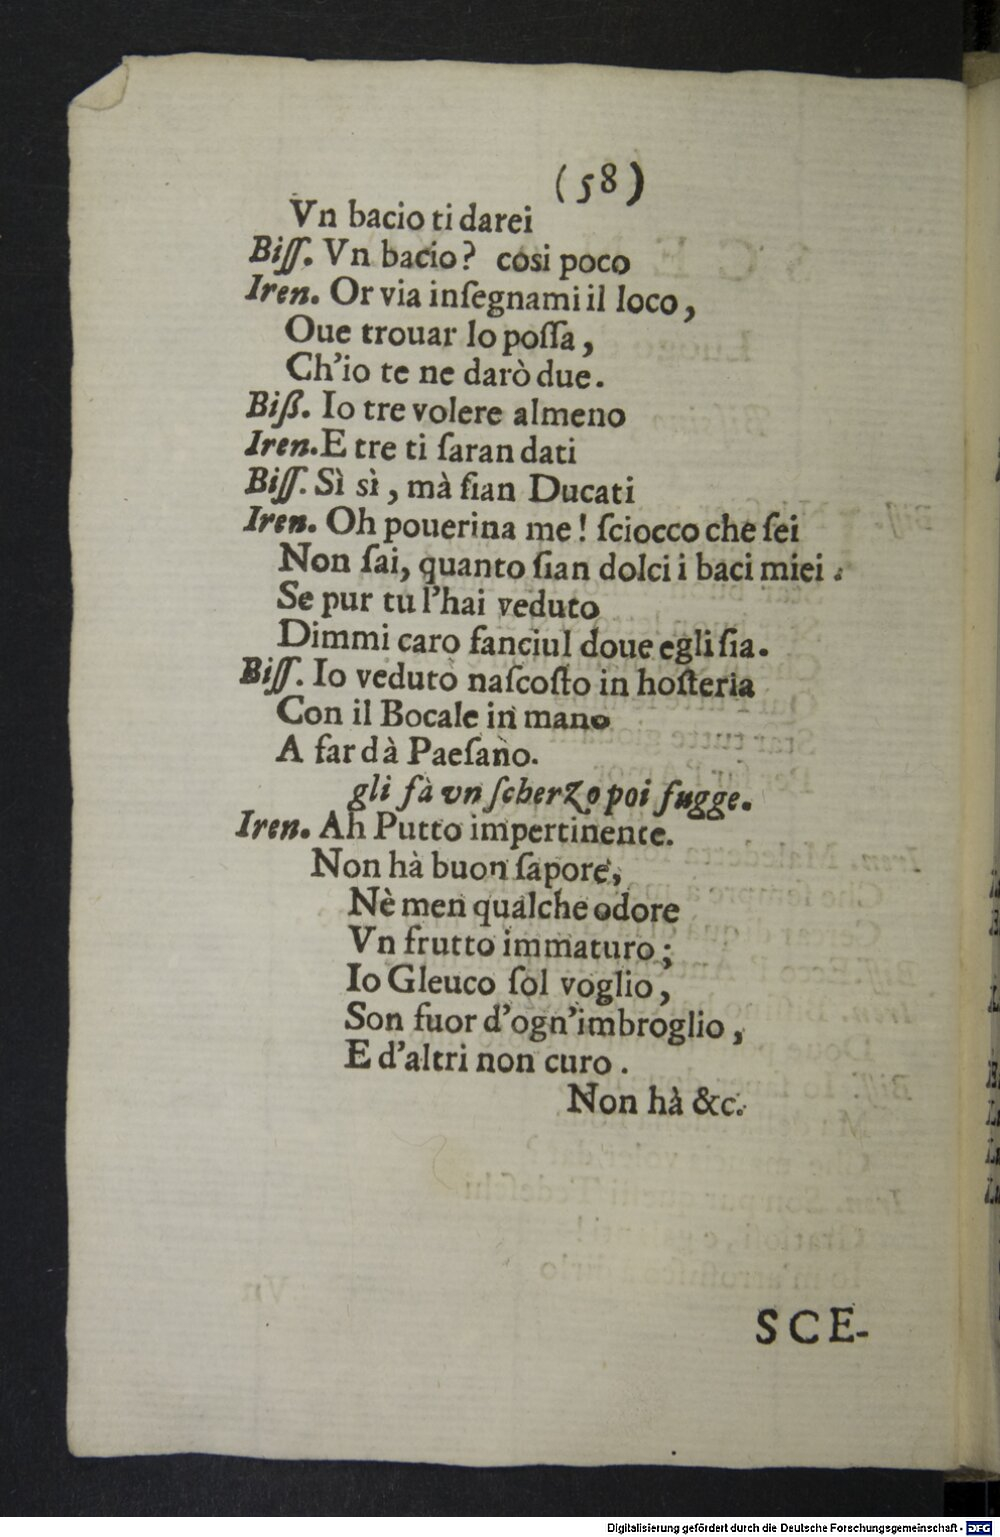 (58)
Vn bacio ti darei
Biſſ. Vn bacio? cosi poco
Iren. Or via inſegnami il loco,
Oue trouar lo poſſa,
Ch'io te ne darò due.
Biß. Io tre volere almeno
Iren. E tre ti ſaran dati
Biſſ. Sì sì, mà ſian Ducati
Iren. Oh pouerina me! ſciocco che ſei
Non ſai, quanto ſian dolci i baci miei.
Se pur tu l'hai veduto
Dimmi caro fanciul doue egli ſia.
Biſſ. Io veduto naſcoſto in hoſteria
Con il Bocale in mano
A far dà Paeſano.
gli fà vn ſcherzo poi fugge.
Iren. Ah Putto impertinente.
Non hà buon ſapore,
Nè men qualche odore
Vn frutto immaturo;
Io Gleuco ſol voglio,
Son fuor d'ogn'imbroglio,
E d'altri non curo.
Non hà &c.
SCE-
Digitalisierung gefördert durch die Deutsche Forschungsgemeinschaft - DFG